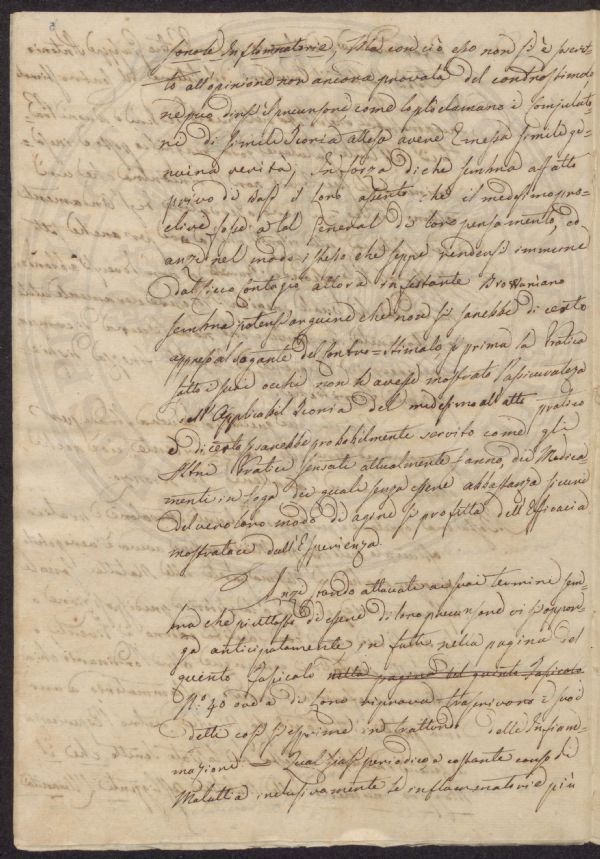 sono le Inflammatorie; Ma con ciò esso non si è
all'opinione non ancora provata del controstimolo
ne può dirsi il precursore come lo proclamano i
ni di simile Teoria attesa avere Emessa simile ge-
nuina verità, In forza di che sembra affatto
privo di Basi il loro asserto, che il medesimo pro-
clive fosse a tal General di loro pensamento, ed
anzi nel modo istesso che seppe rendersi immune
dal contagio allora infestante Browniano
sembra potersi arguire che non si sarebbe di certo
appreso al Contro=stimolo se prima la Pratica
sotto i suoi occhi non li avesse mostrato l'assicuratezza
dell'Applicabil Teoria del medesimo all'atto pratico
e di certo sarebbe probabilmente servito come gli
Altri Pratici sensati attualmente fanno, di Medica-
menti in foga dei quali senza essere abbastanza sicuri
del vero loro modo di agire si profitta dell'Efficacia
mostrataci dall'Esperienza.
Anzi stando attaccati a suoi termini sem-
bra che piuttosto di essere di loro precursore vi si oppon-
ga anticipatamente in fatti nella pagina del
quinto Fascicolo nella pagina del quinto Fascicolo
N.º 40 ove a di loro riprova trascrivono i suoi
detti così si esprime in trattando delle Infiam-
mazione — Qualsiasi periodico e costante corso di
Malattia inclusivamente le inflammatorie più